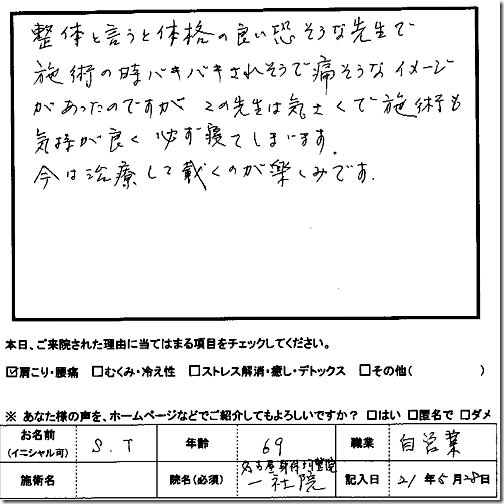 整体と言うと体格の良い恐そうな先生で
施術の時バキバキされそうで痛そうなイメージ
があったのですが この先生は気さくで施術も
気持が良く 必ず寝てしまいます.
今は治療して載くのが楽しみです.
本日、ご来院された理由に当てはまる項目をチェックしてください。
☑肩こり・腰痛 □むくみ・冷え性 □ストレス解消・癒し・デトックス □その他( )
※ あなた様の声を、ホームページなどでご紹介してもよろしいですか? □はい □匿名で □ダメ
お名前 (イニシャル可) S.T 年齢 69 職業 自営業
施術名 院名(必須) 名古屋身体均整院 一社院 記入日 21年5月28日